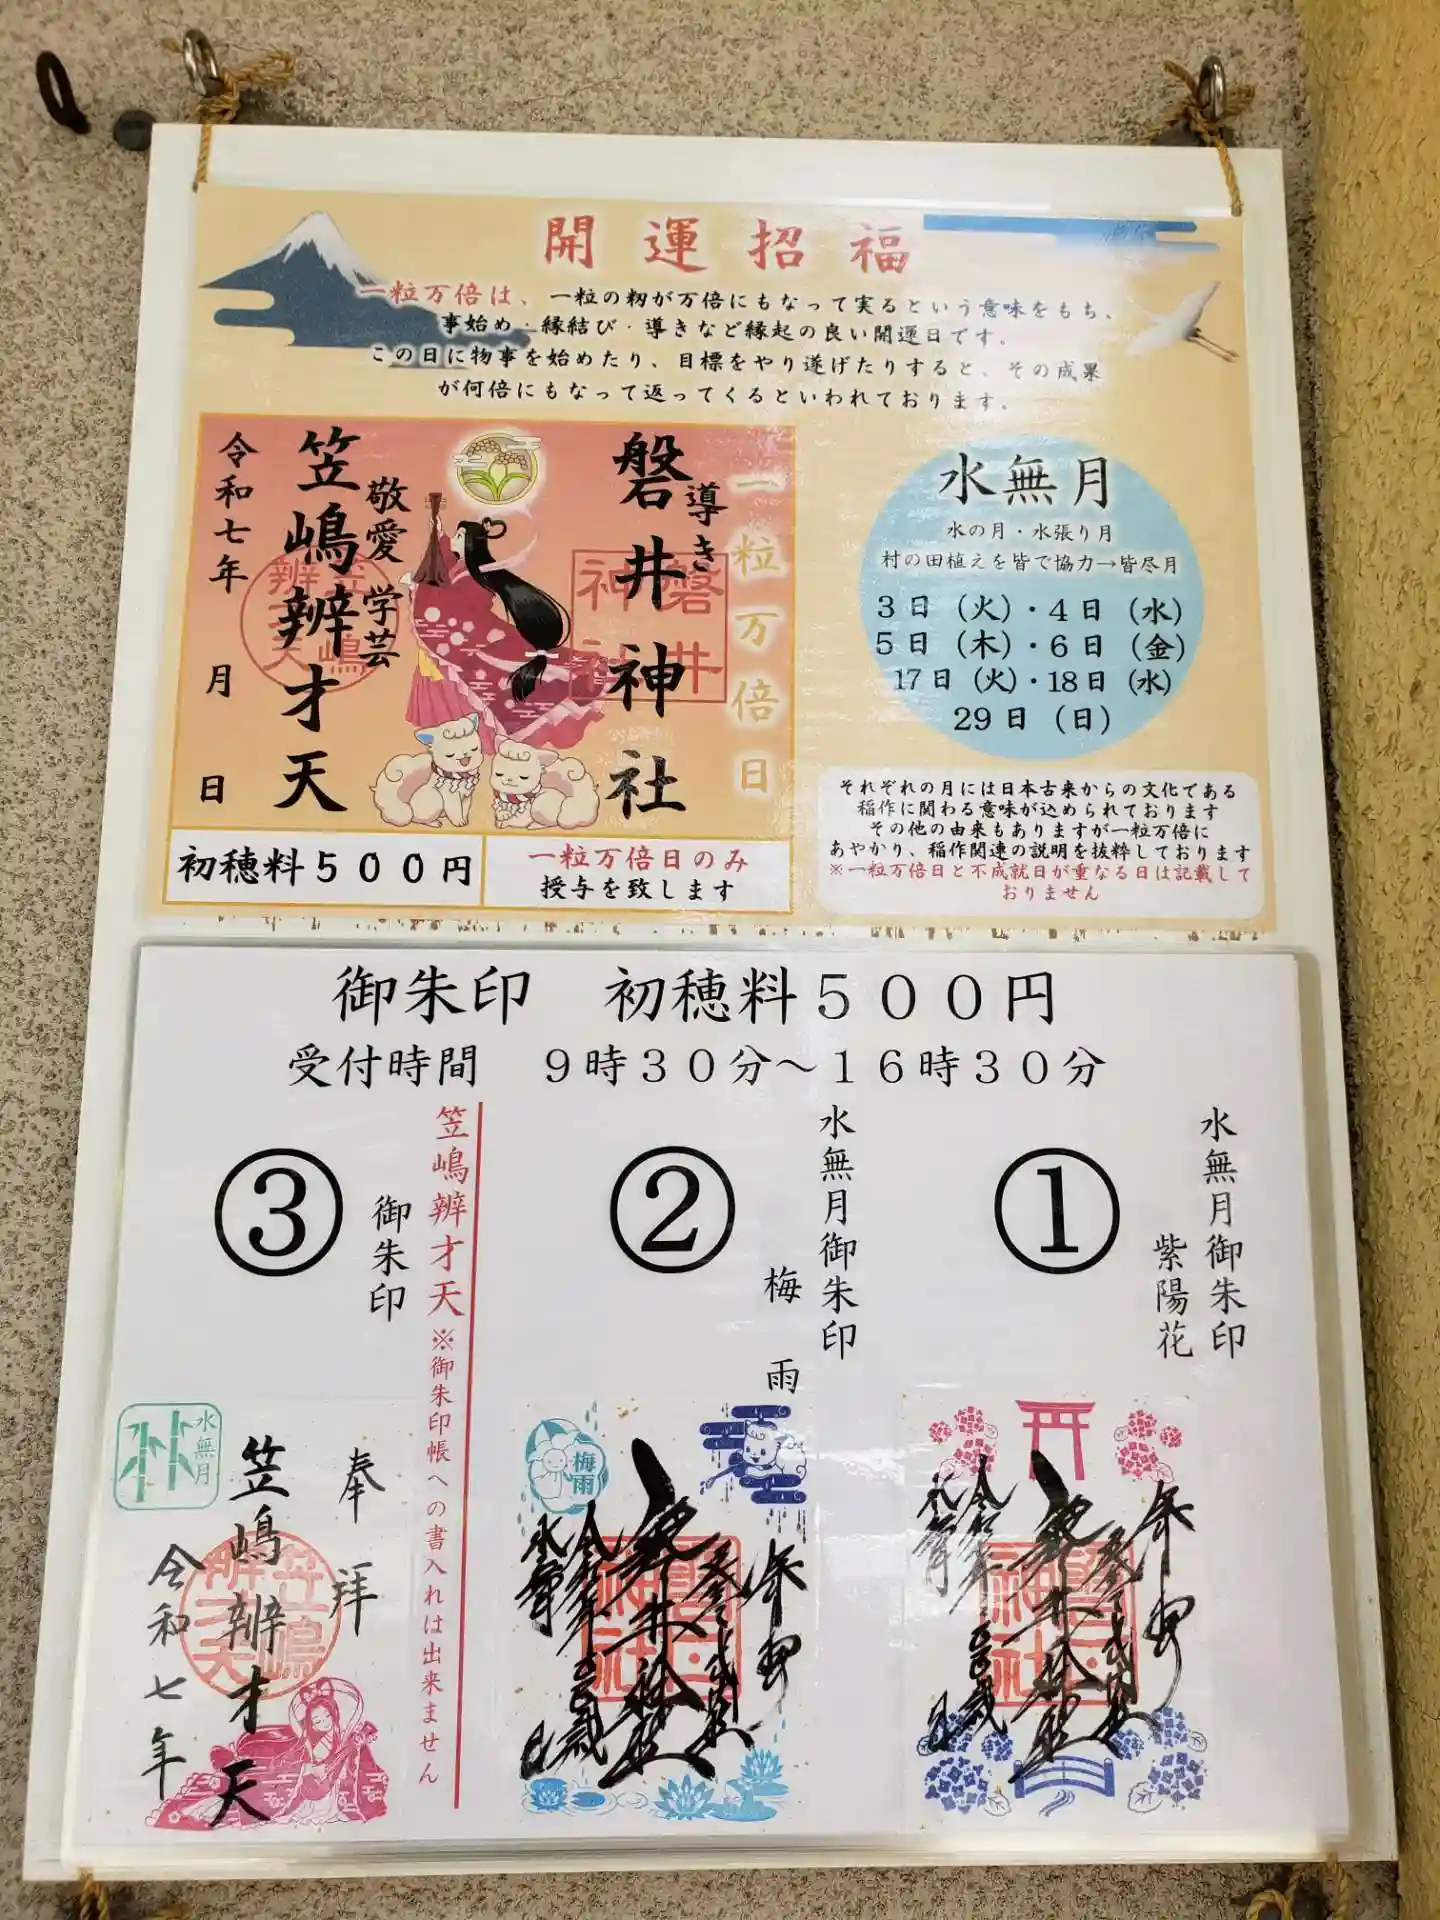 開運招福
一粒万倍は、一粒の籾が万倍にもなって実るという意味をもち、
事始め・縁結び・導きなど縁起の良い開運日です。
この日に物事を始めたり、目標をやり遂げたりすると、その成果
が何倍にもなって返ってくるといわれております。
一粒万倍日
導き
磐井神社
磐井神社
敬愛 学芸
笠嶋辨才天
笠嶋辨才天
令和七年 月 日
初穂料５００円
一粒万倍日のみ
授与を致します
水無月
水の月・水張り月
村の田植えを皆で協力→皆尽月
3日（火）・4日（水）
5日（木）・6日（金）
17日（火）・18日（水）
29日（日）
それぞれの月には日本古来からの文化である
稲作に関わる意味が込められております
その他の由来もありますが一粒万倍に
あやかり、稲作関連の説明を抜粋しております
※一粒万倍日と不成就日が重なる日は記載して
おりません
御朱印　初穂料５００円
受付時間　９時３０分～１６時３０分
①
水無月御朱印
紫陽花
②
水無月御朱印
梅雨
梅雨
③
笠嶋辨才天※御朱印帳への書入れは出来ません
御朱印
水無月
奉拝
笠嶋辨才天
笠嶋辨才天
令和七年